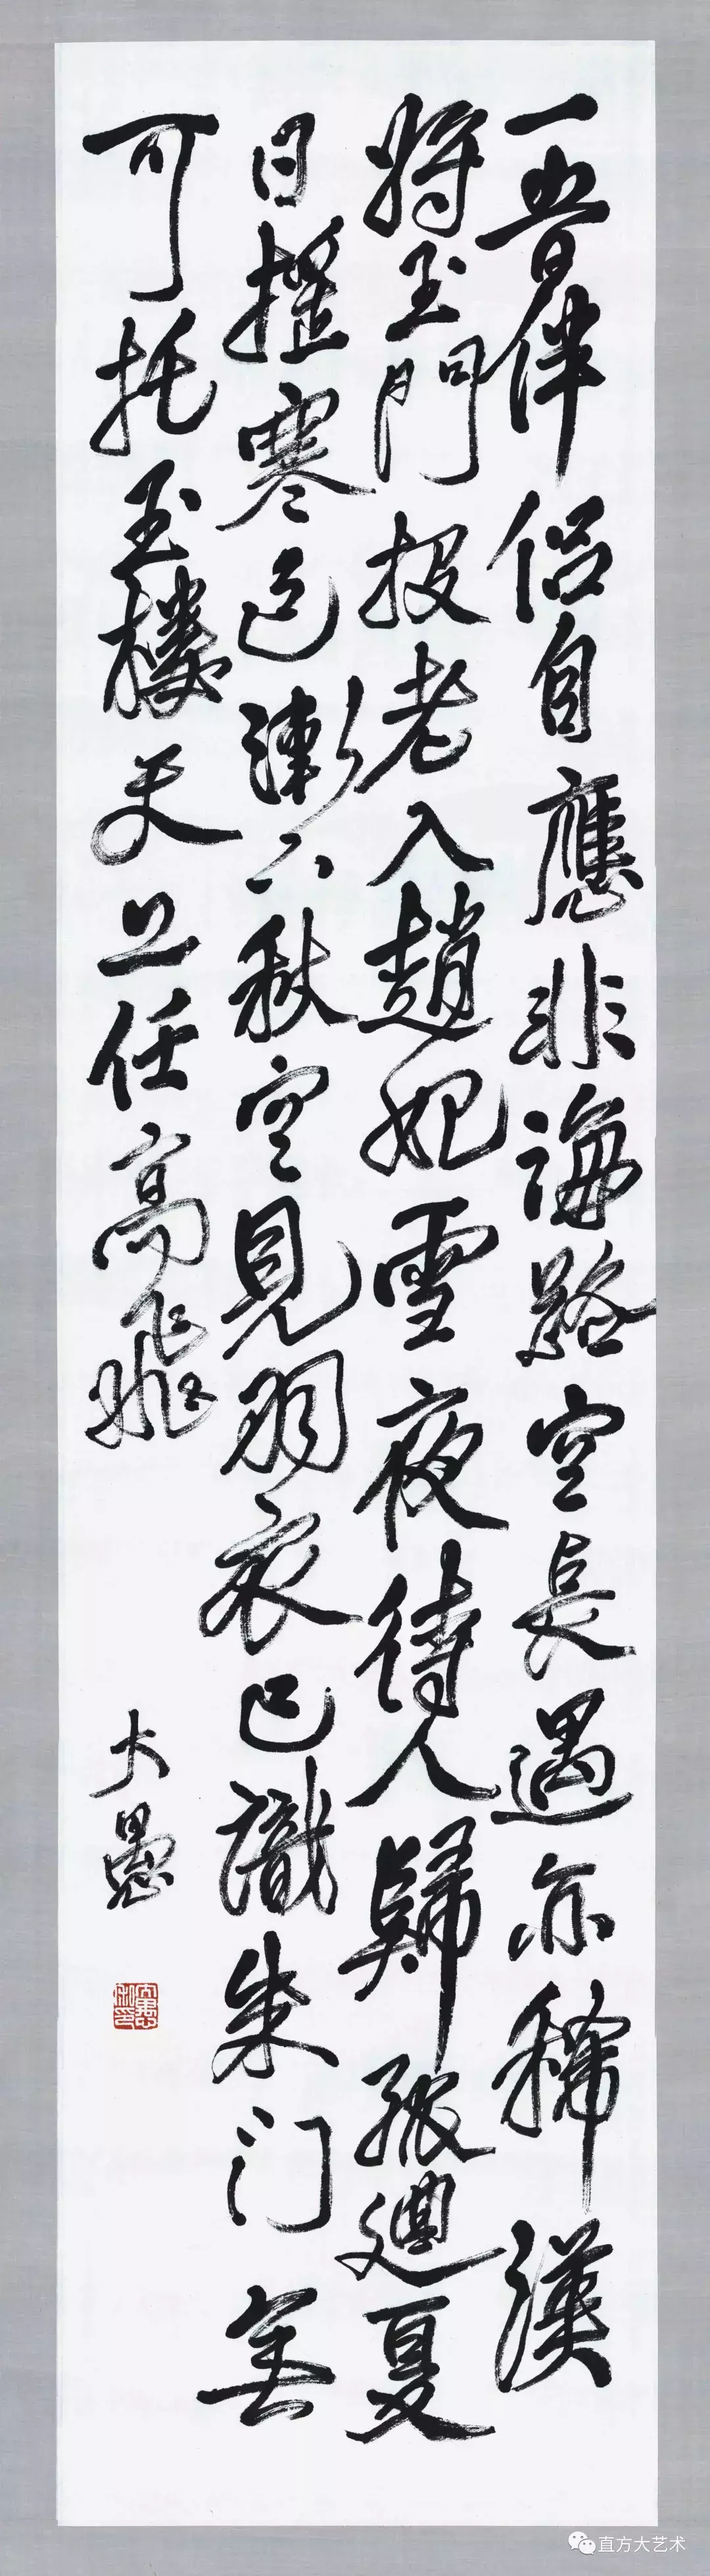 一昔伴侶自應非海路空長遇亦稀漢
將玉門投老入趙妃雪夜待人歸孤迴夏
日摧寒色漸下秋空見羽衣已識朱门無
可托玉樓天上任高飛
大愚
直方大艺术